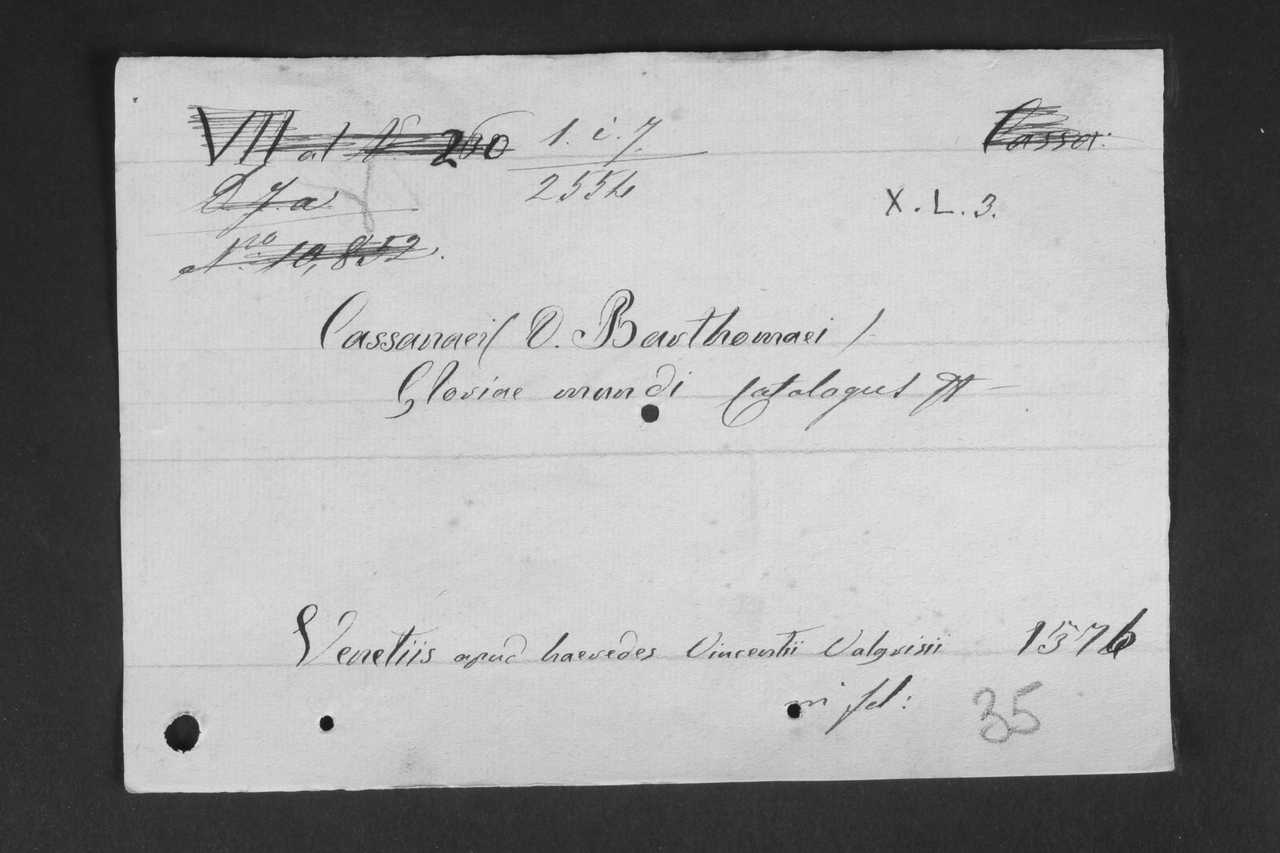 VII at N 260 1. i. 7. Cassa:
D. 7. a 2554 X. L. 3.
Nro. 10,852.
Cassanaei (D. Barthomaei)
Gloriae mundi Catalogus
Venetiis apud haeredes Vincentii Valgrisii 1576
in fol: 35